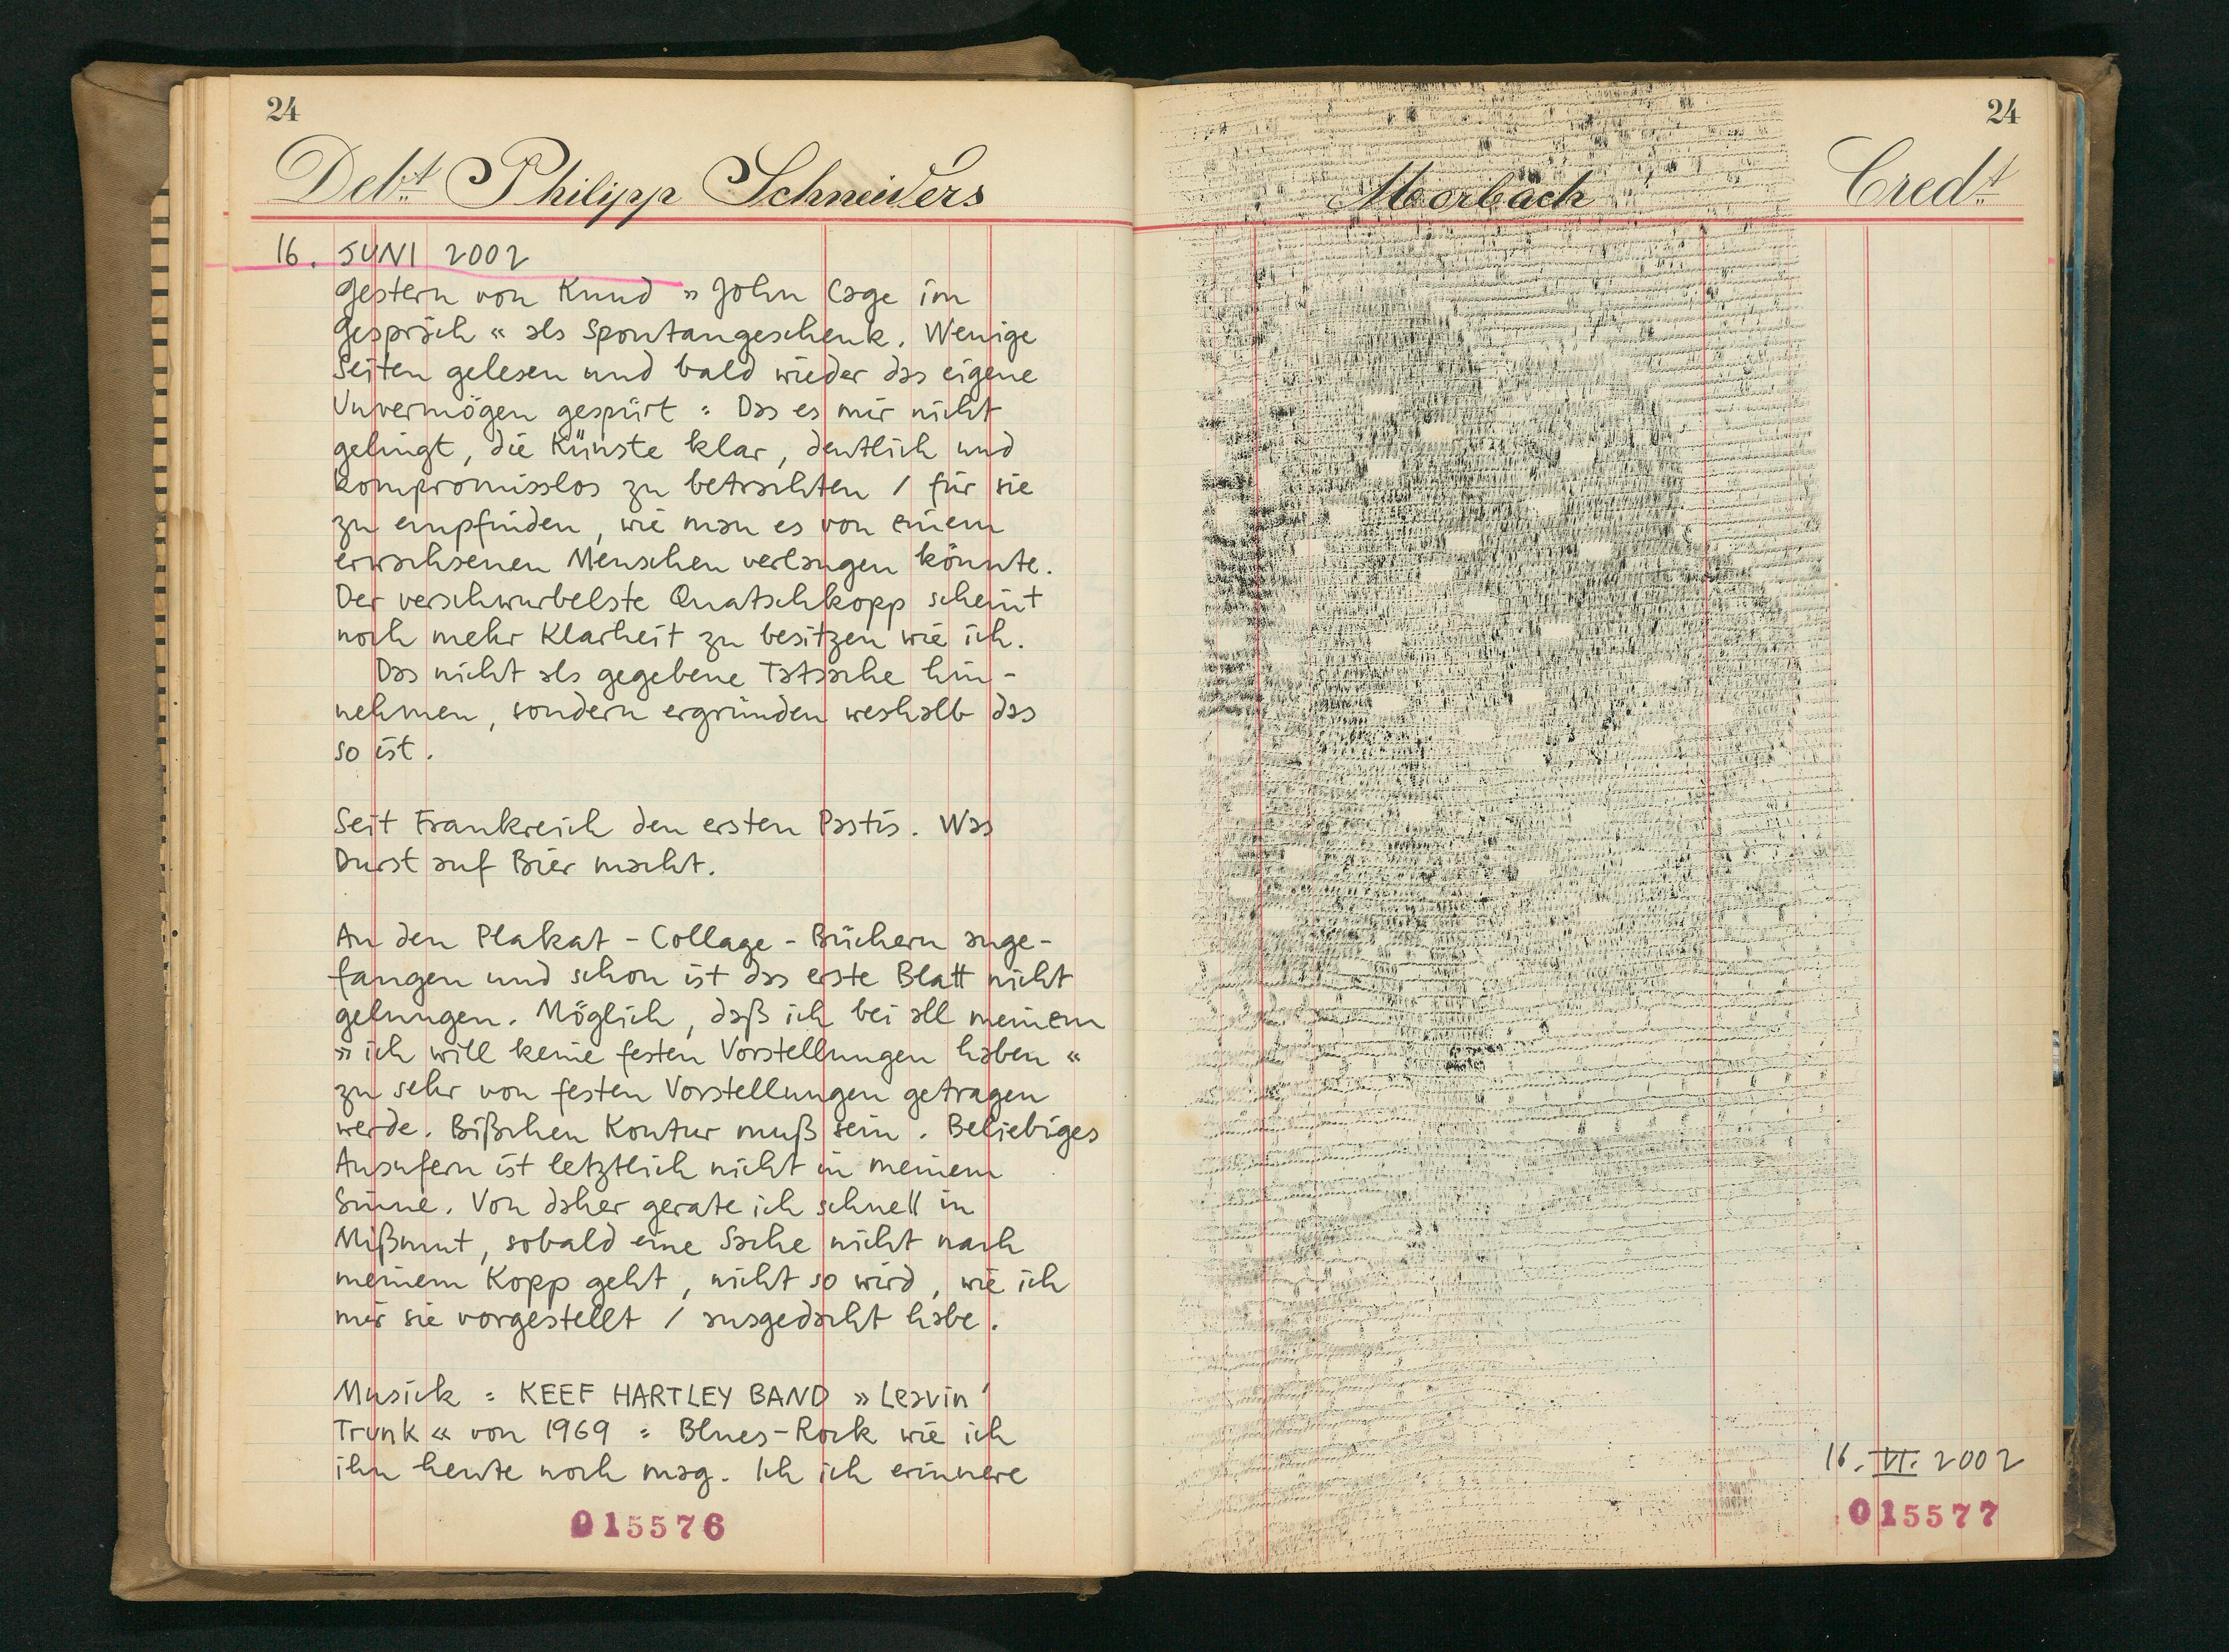 24
Debt Philipp Schneiders
16. JUNI 2002
Gestern von Knud » John Cage im
Gespräch « als Spontangeschenk. Wenige
Seiten gelesen und bald wieder das eigene
Unvermögen gespürt : Das es mir nicht
gelingt, die Künste klar, deutlich und
kompromisslos zu betrachten / für sie
zu empfinden, wie man es von einem
erwachsenen Menschen verlangen könnte.
Der verschwurbelste Quatschkopp scheint
noch mehr Klarheit zu besitzen wie ich.
Das nicht als gegebene Tatsache hin-
nehmen, sondern ergründen weshalb das
so ist.
Seit Frankreich den ersten Pastis. Was
Durst auf Bier macht.
An den Plakat - Collage - Büchern ange-
fangen und schon ist das erste Blatt nicht
gelungen. Möglich, daß ich bei all meinem
» ich will keine festen Vorstellungen haben «
zu sehr von festen Vorstellungen getragen
werde. Bißchen Kontur muß sein. Beliebiges
Ausufern ist letztlich nicht in meinem
Sinne. Von daher gerate ich schnell in
Mißmut, sobald eine Sache nicht nach
meinem Kopp geht, nicht so wird, wie ich
mir sie vorgestellt / ausgedacht habe.
Musick : KEEF HARTLEY BAND » Leavin'
Trunk « von 1969 : Blues-Rock wie ich
ihn heute noch mag. Ich ich erinnere
015576
24
Morbach Credt
16. VI. 2002
015577